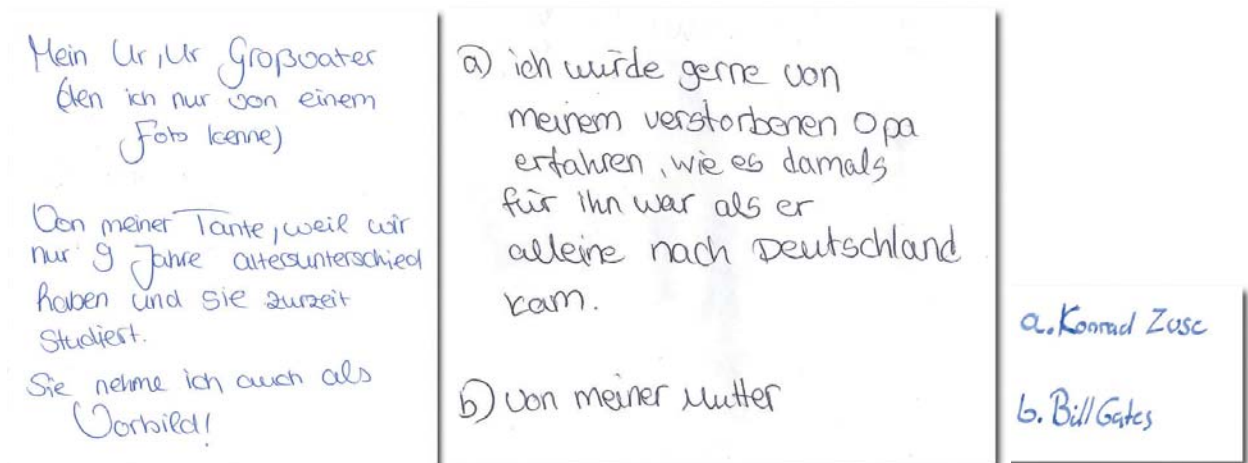 Mein Ur, Ur Großvater
(den ich nur von einem
Foto kenne)
Von meiner Tante, weil wir
nur 9 Jahre altersunterschied
haben und sie zurzeit
Studiert.
Sie nehme ich auch als
Vorbild!
a) ich würde gerne von
meinem verstorbenen Opa
erfahren, wie es damals
für ihn war als er
alleine nach Deutschland
kam.
b) von meiner Mutter
a. Konrad Zuse
b. Bill Gates